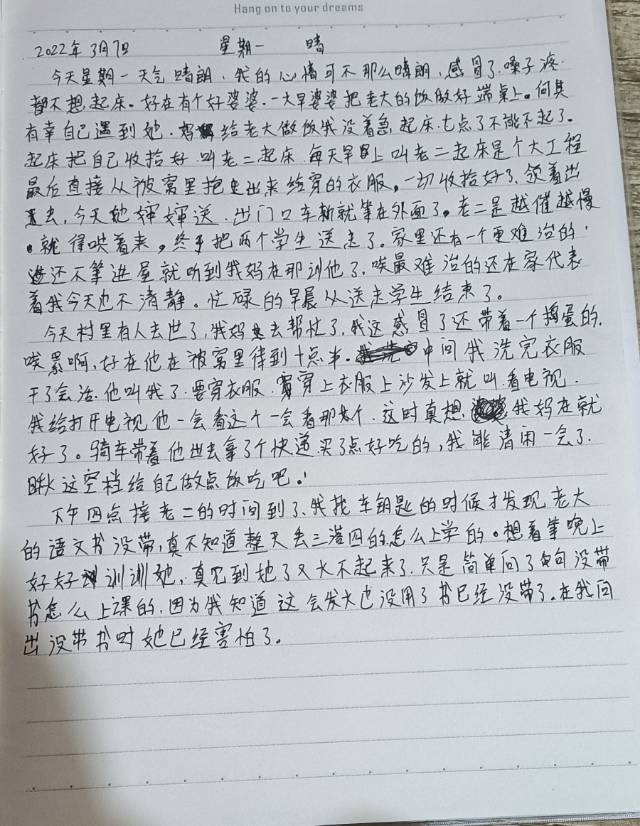 Hang on to your dreams
2022年3月7日 星期一 晴
今天星期一天气晴朗,我的心情可不那么晴朗,感冒了,嗓子疼
都不想起床。好在有个好婆婆,一大早婆婆把老大的饭做好端桌上。何其
有幸自己遇到她.给老大做饭我没着急起床.七点了不能不起了。
起床把自己收拾好.叫老二起床.每天早上叫老二起床是个大工程
最后直接从被窝里抱出来给穿的衣服,一切收拾好了、领着出
去,今天她婶婶送.出门口车就等在外面了。老二是越催越慢
就得哄着来,终于把两个学生送走了。家里还有一个更难治的!
还不等进屋就听到我妈在那训他了.唉最难治的还在家代表
着我今天也不清静。忙碌的早晨从送走学生结束了。
今天村里有人去世了,我妈去帮忙了,我这感冒了还带着一个捣蛋的.
唉累啊,好在他在被窝里待到十点半.中间我洗完衣服
干了会活.他叫我了.要穿衣服.穿上衣服上沙发上就叫看电视.
我给打开电视他一会看这个一会看那个.这时真想我妈在就
好了。骑车带着他出去拿了个快递买了点好吃的,我能清闲一会了.
趁这空档给自己做点饭吃吧.
下午四点接老二的时间到了、我找车钥匙的时候才发现老大
的语文书没带,真不知道整天丢三落四的怎么上学的。想着等晚上
好好训训她,真见到她了又火不起来了.只是简单问了句没带
书怎么上课的,因为我知道这会发火也没用了书已经没带了.在我问
出没带书时她已经害怕了。